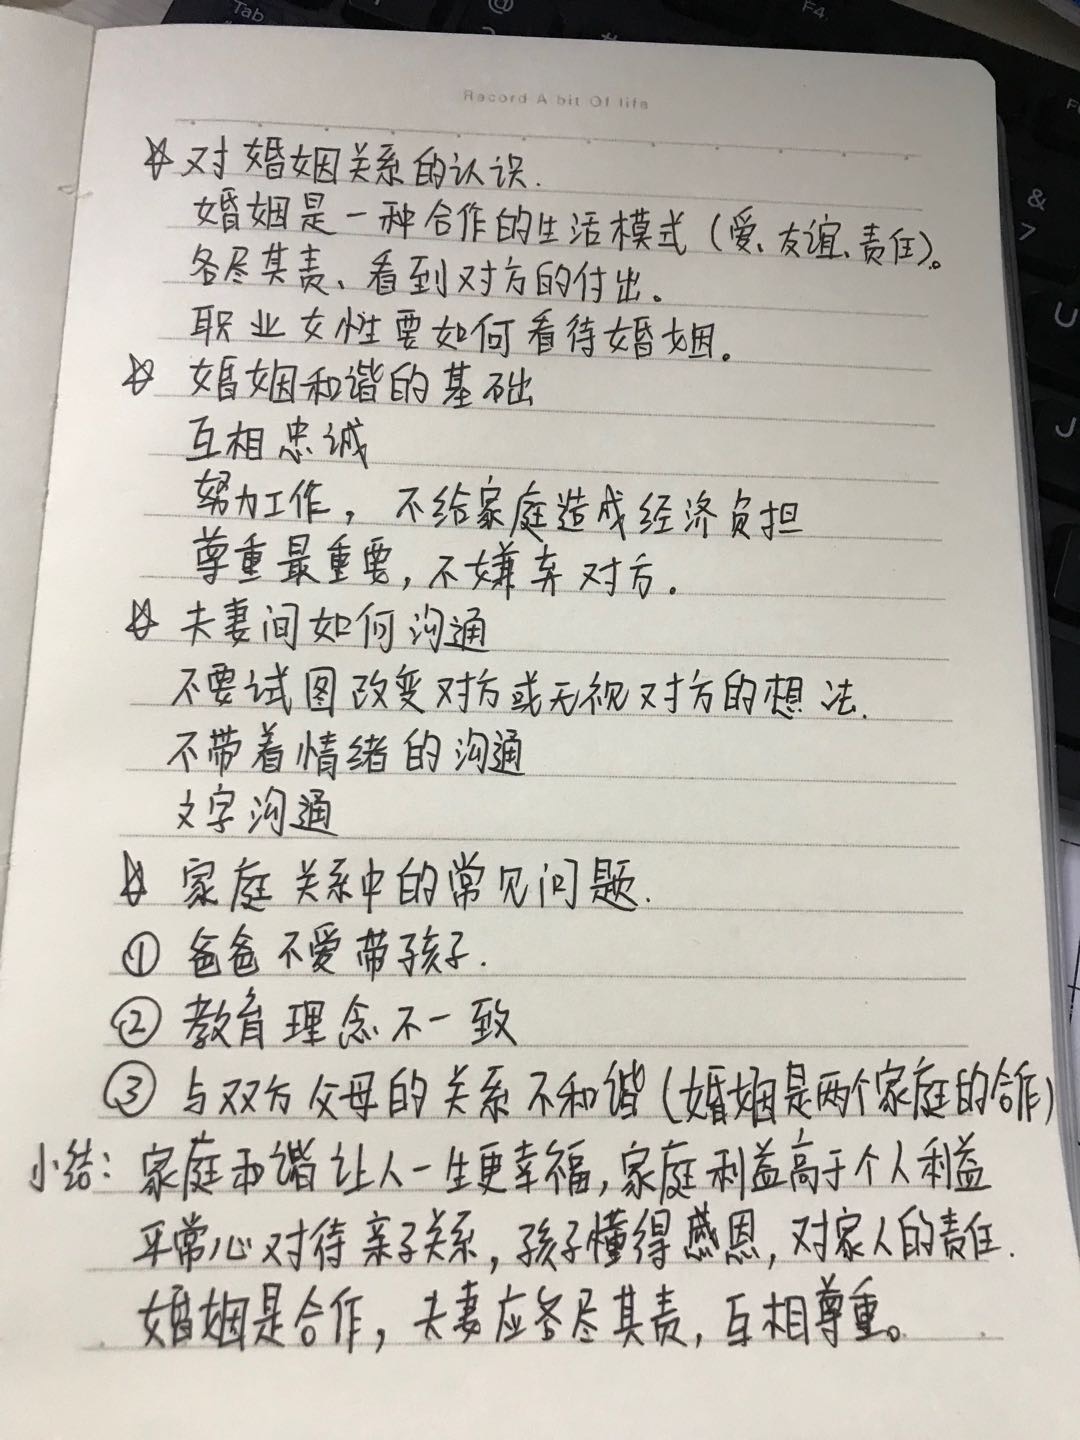 Tab
@
2
F4
&
7
U
J
Record A bit Of life
☆ 对婚姻关系的认识.
婚姻是一种合作的生活模式(爱、友谊、责任)。
各尽其责、看到对方的付出。
职业女性要如何看待婚姻。
☆ 婚姻和谐的基础
互相忠诚
努力工作，不给家庭造成经济负担
尊重最重要,不嫌弃对方。
☆ 夫妻间如何沟通
不要试图改变对方或无视对方的想法.
不带着情绪的沟通
文字沟通
☆ 家庭关系中的常见问题.
① 爸爸不爱带孩子.
② 教育理念不一致
③ 与双方父母的关系不和谐(婚姻是两个家庭的合作)
小结: 家庭和谐让人一生更幸福,家庭利益高于个人利益
平常心对待亲子关系,孩子懂得感恩,对家人的责任.
婚姻是合作,夫妻应各尽其责,互相尊重。